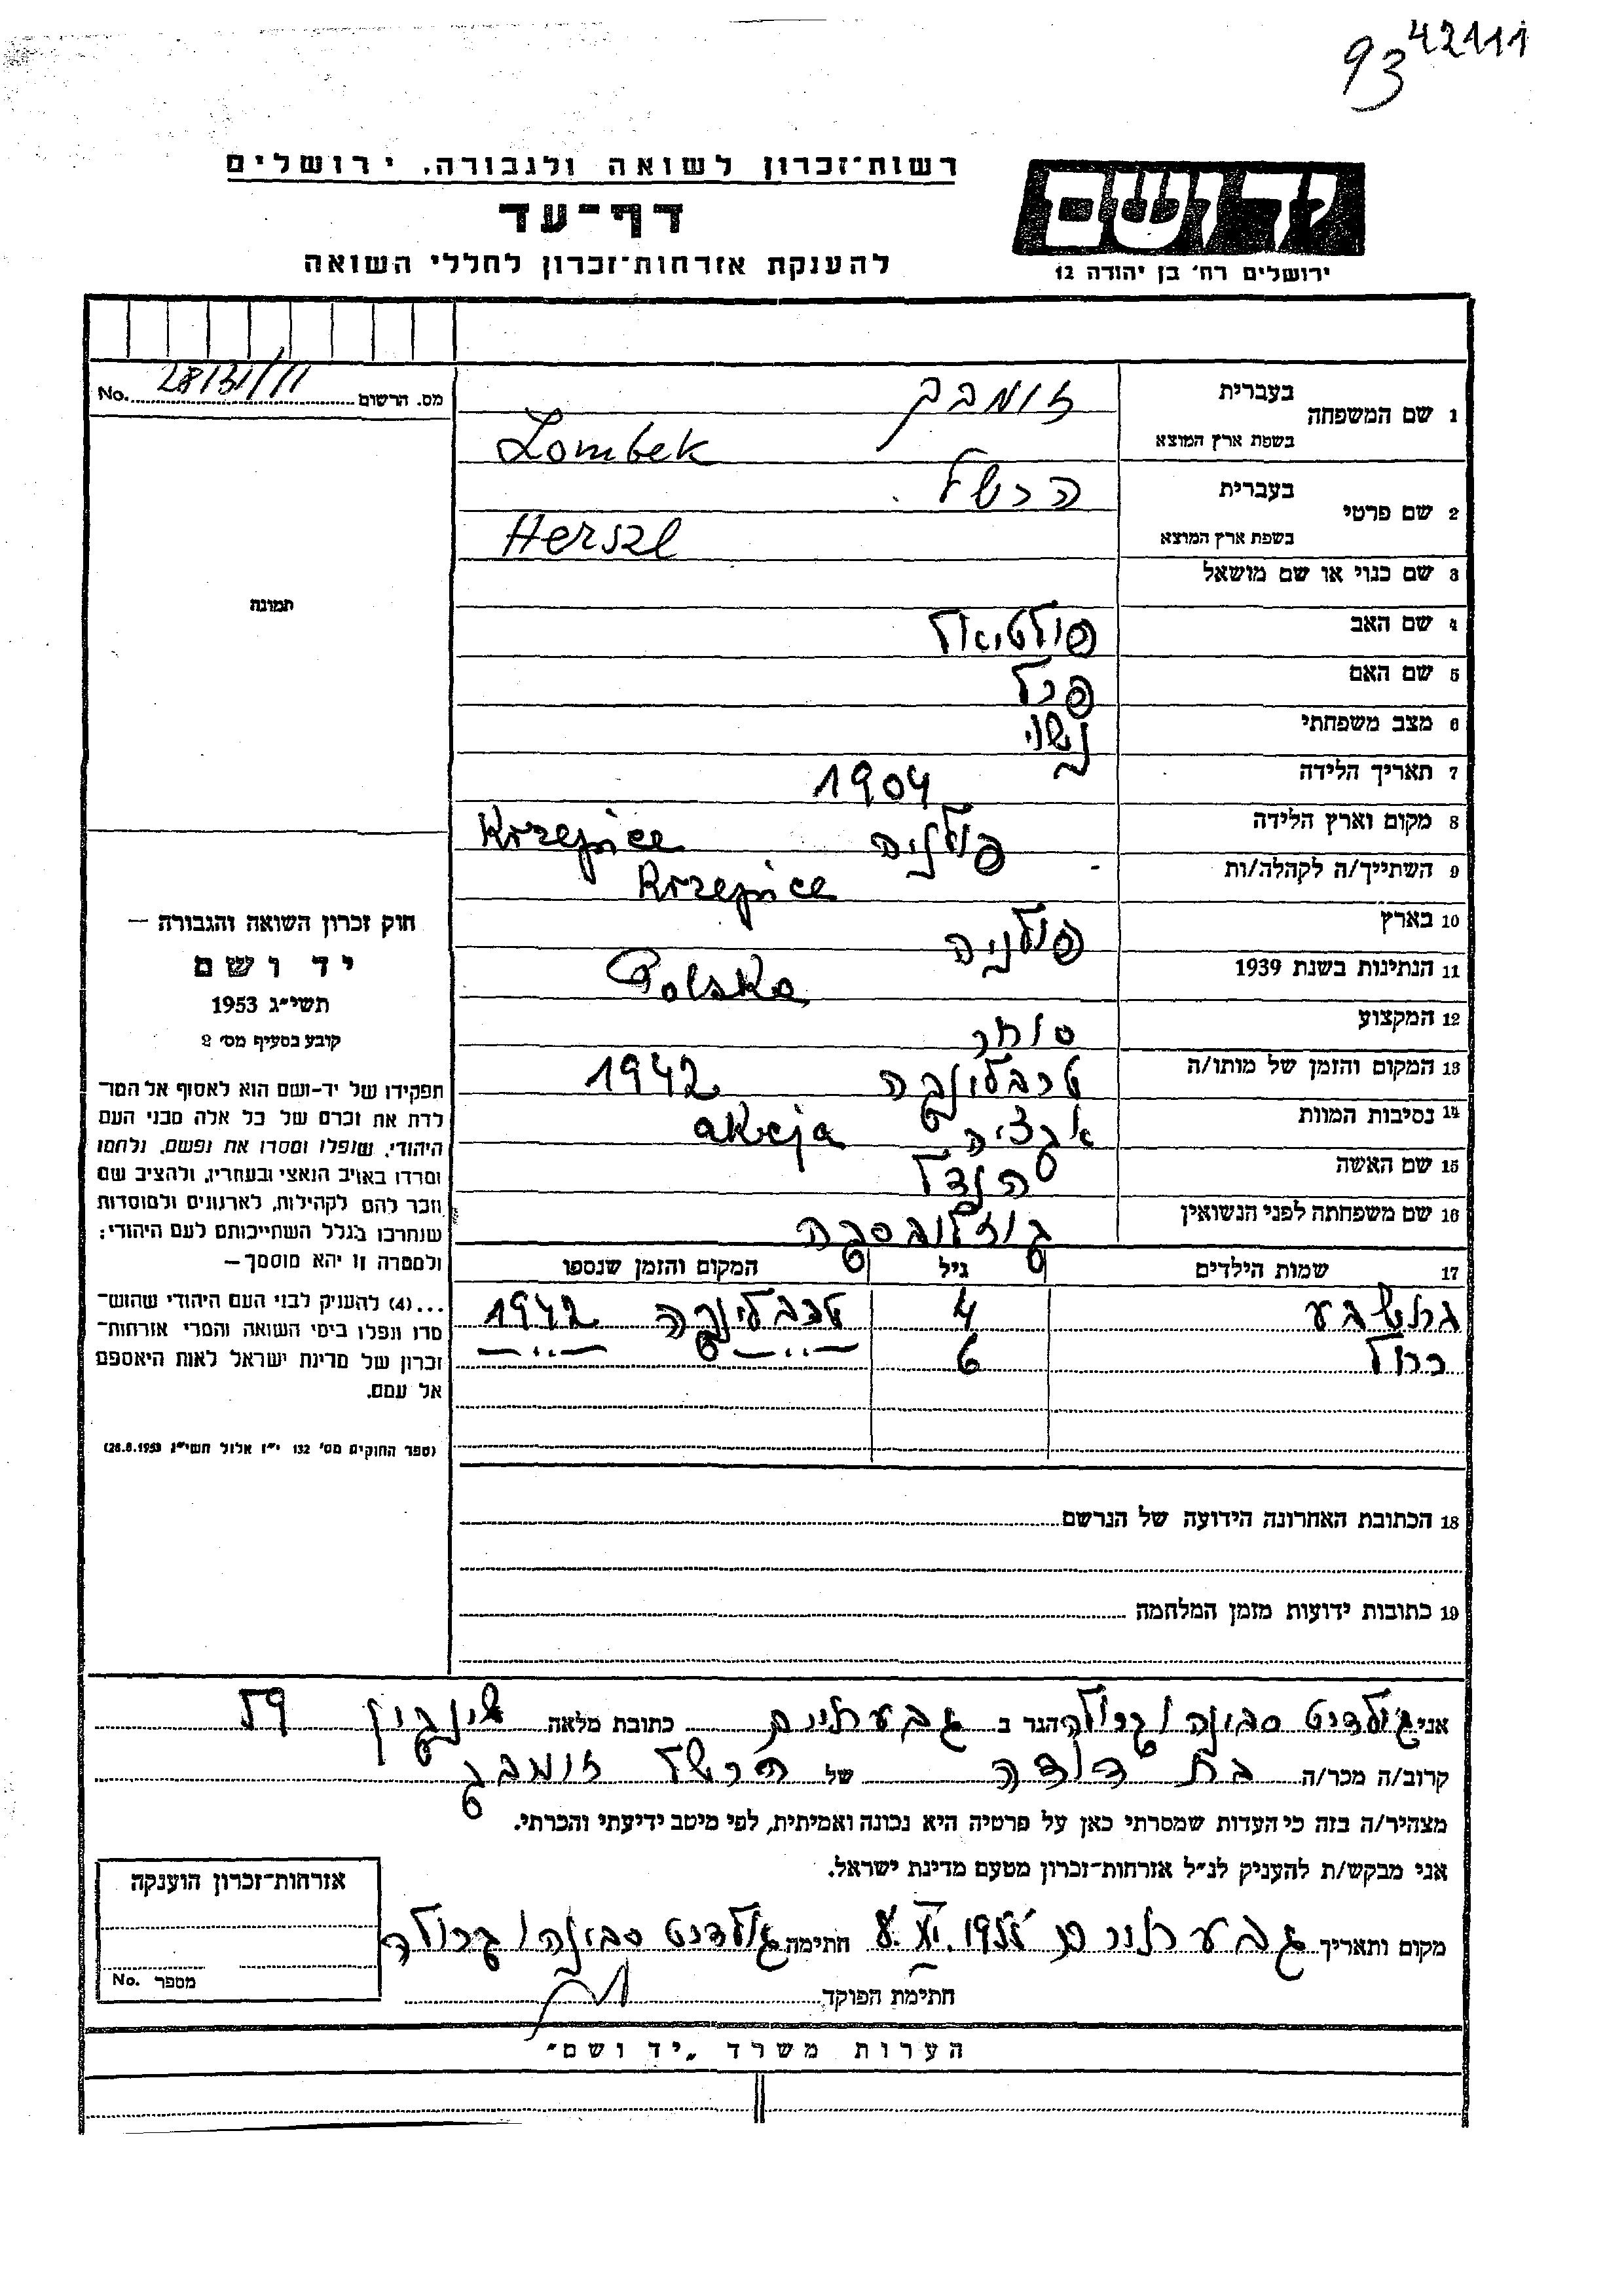 42111
93
רשות־זכרון לשואה ולגבורה, ירושלים
יד ושם
דף־עד
להענקת אזרחות־זכרון לחללי השואה
ירושלים רח' בן יהודה 12
מס. הרשום No. 28/31/11
1 שם המשפחה בעברית זומבק
בשפת ארץ המוצא Zombek
2 שם פרטי בעברית הרשל
בשפת ארץ המוצא Herszl
3 שם כנוי או שם מושאל
4 שם האב פולטיאל
5 שם האם פרל
6 מצב משפחתי נשוי
7 תאריך הלידה 1904
8 מקום וארץ הלידה פולניה Krzepice
9 השתייך/ה לקהלה/ות Krzepice
10 בארץ פולניה
11 הנתינות בשנת 1939 Polska
12 המקצוע סוחר
13 המקום והזמן של מותו/ה טרבלינקה 1942
14 נסיבות המוות אקציה akcja
15 שם האשה הנדל
16 שם משפחתה לפני הנשואין קוזלובסקה
17 שמות הילדים גיל המקום והזמן שנספו
4 טרבלינקה 1942
6 — " — — " —
18 הכתובת האחרונה הידועה של הנרשם
19 כתובות ידועות מזמן המלחמה
תמונה
חוק זכרון השואה והגבורה —
יד ושם
תשי"ג 1953
קובע בסעיף מס' 2
תפקידו של יד-ושם הוא לאסוף אל המו־
לדת את זכרם של כל אלה מבני העם
היהודי, שנפלו ומסרו את נפשם, נלחמו
ומרדו באויב הנאצי ובעוזריו, ולהציב שם
וזכר להם לקהילות, לארגונים ולמוסדות
שנחרבו בגלל השתייכותם לעם היהודי;
ולמטרה זו יהא מוסמך —
...(4) להעניק לבני העם היהודי שהוש־
מדו ונפלו בימי השואה והמרי אזרחות־
זכרון של מדינת ישראל לאות היאספם
אל עמם.
(ספר החוקים מס' 132 י"ז אלול תשי"ג 28.8.1953)
אני גולדניט סבינה הגר ב גבעתיים כתובת מלאה שינקין 59
קרוב/ה מכר/ה בת דודה של הרשל זומבק
מצהיר/ה בזה כי העדות שמסרתי כאן על פרטיה היא נכונה ואמיתית, לפי מיטב ידיעתי והכרתי.
אני מבקש/ת להעניק לנ"ל אזרחות־זכרון מטעם מדינת ישראל.
מקום ותאריך גבעתיים חתימה גולדניט סבינה
חתימת הפוקד
אזרחות־זכרון הוענקה
מספר No.
הערות משרד „יד ושם"